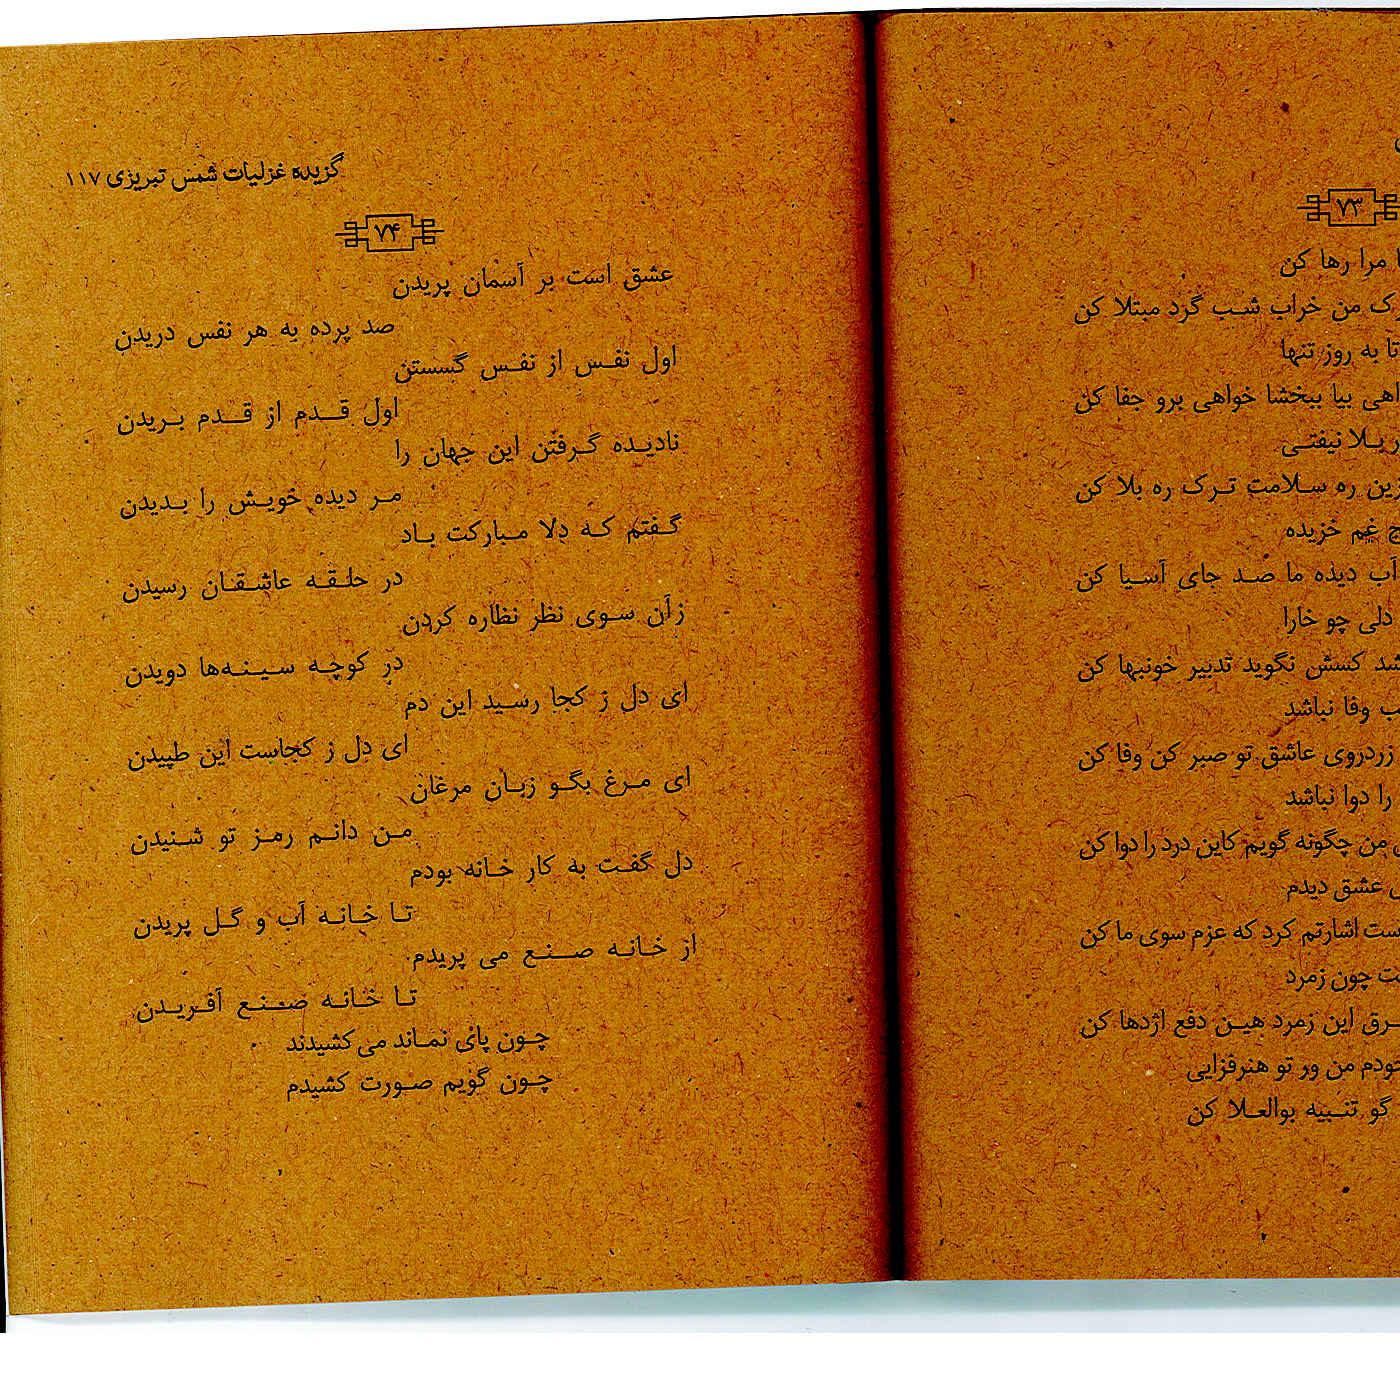 ۷۳
مرا رها کن
من خراب شب گرد مبتلا کن
تا به روز تنها
بیا ببخشا خواهی برو جفا کن
بلا نیفتی
ره سلامت ترک ره بلا کن
غم خزیده
آب دیده ما صد جای آسیا کن
دلی چو خارا
کسش نگوید تدبیر خونبها کن
وفا نباشد
زردروی عاشق تو صبر کن وفا کن
را دوا نباشد
من چگونه گویم کاین درد را دوا کن
عشق دیدم
اشارتم کرد که عزم سوی ما کن
چون زمرد
این زمرد هین دفع اژدها کن
من ور تو هنرفزایی
گو تنبیه بوالعلا کن
گزیده غزلیات شمس تبریزی ۱۱۷
۷۴
عشق است بر آسمان پریدن
صد پرده به هر نفس دریدن
اول نفس از نفس گسستن
اول قدم از قدم بریدن
نادیده گرفتن این جهان را
مر دیده خویش را بدیدن
گفتم که دلا مبارکت باد
در حلقه عاشقان رسیدن
زآن سوی نظر نظاره کردن
در کوچه سینه‌ها دویدن
ای دل ز کجا رسید این دم
ای دل ز کجاست این طپیدن
ای مرغ بگو زبان مرغان
من دانم رمز تو شنیدن
دل گفت به کار خانه بودم
تا خانه آب و گل پریدن
از خانه صنع می پریدم
تا خانه صنع آفریدن
چون پای نماند می کشیدند
چون گویم صورت کشیدم